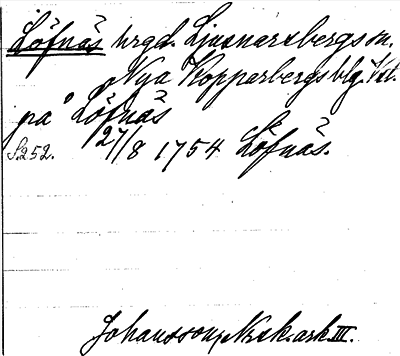 Löfnäs hrgd. Ljusnarsbergs sn.
Nya Kopparbergs blg. Vst.
på Löfnäs
S. 252. 27/8 1754 Löfnäs.
Johansson, Nsk. ark III.